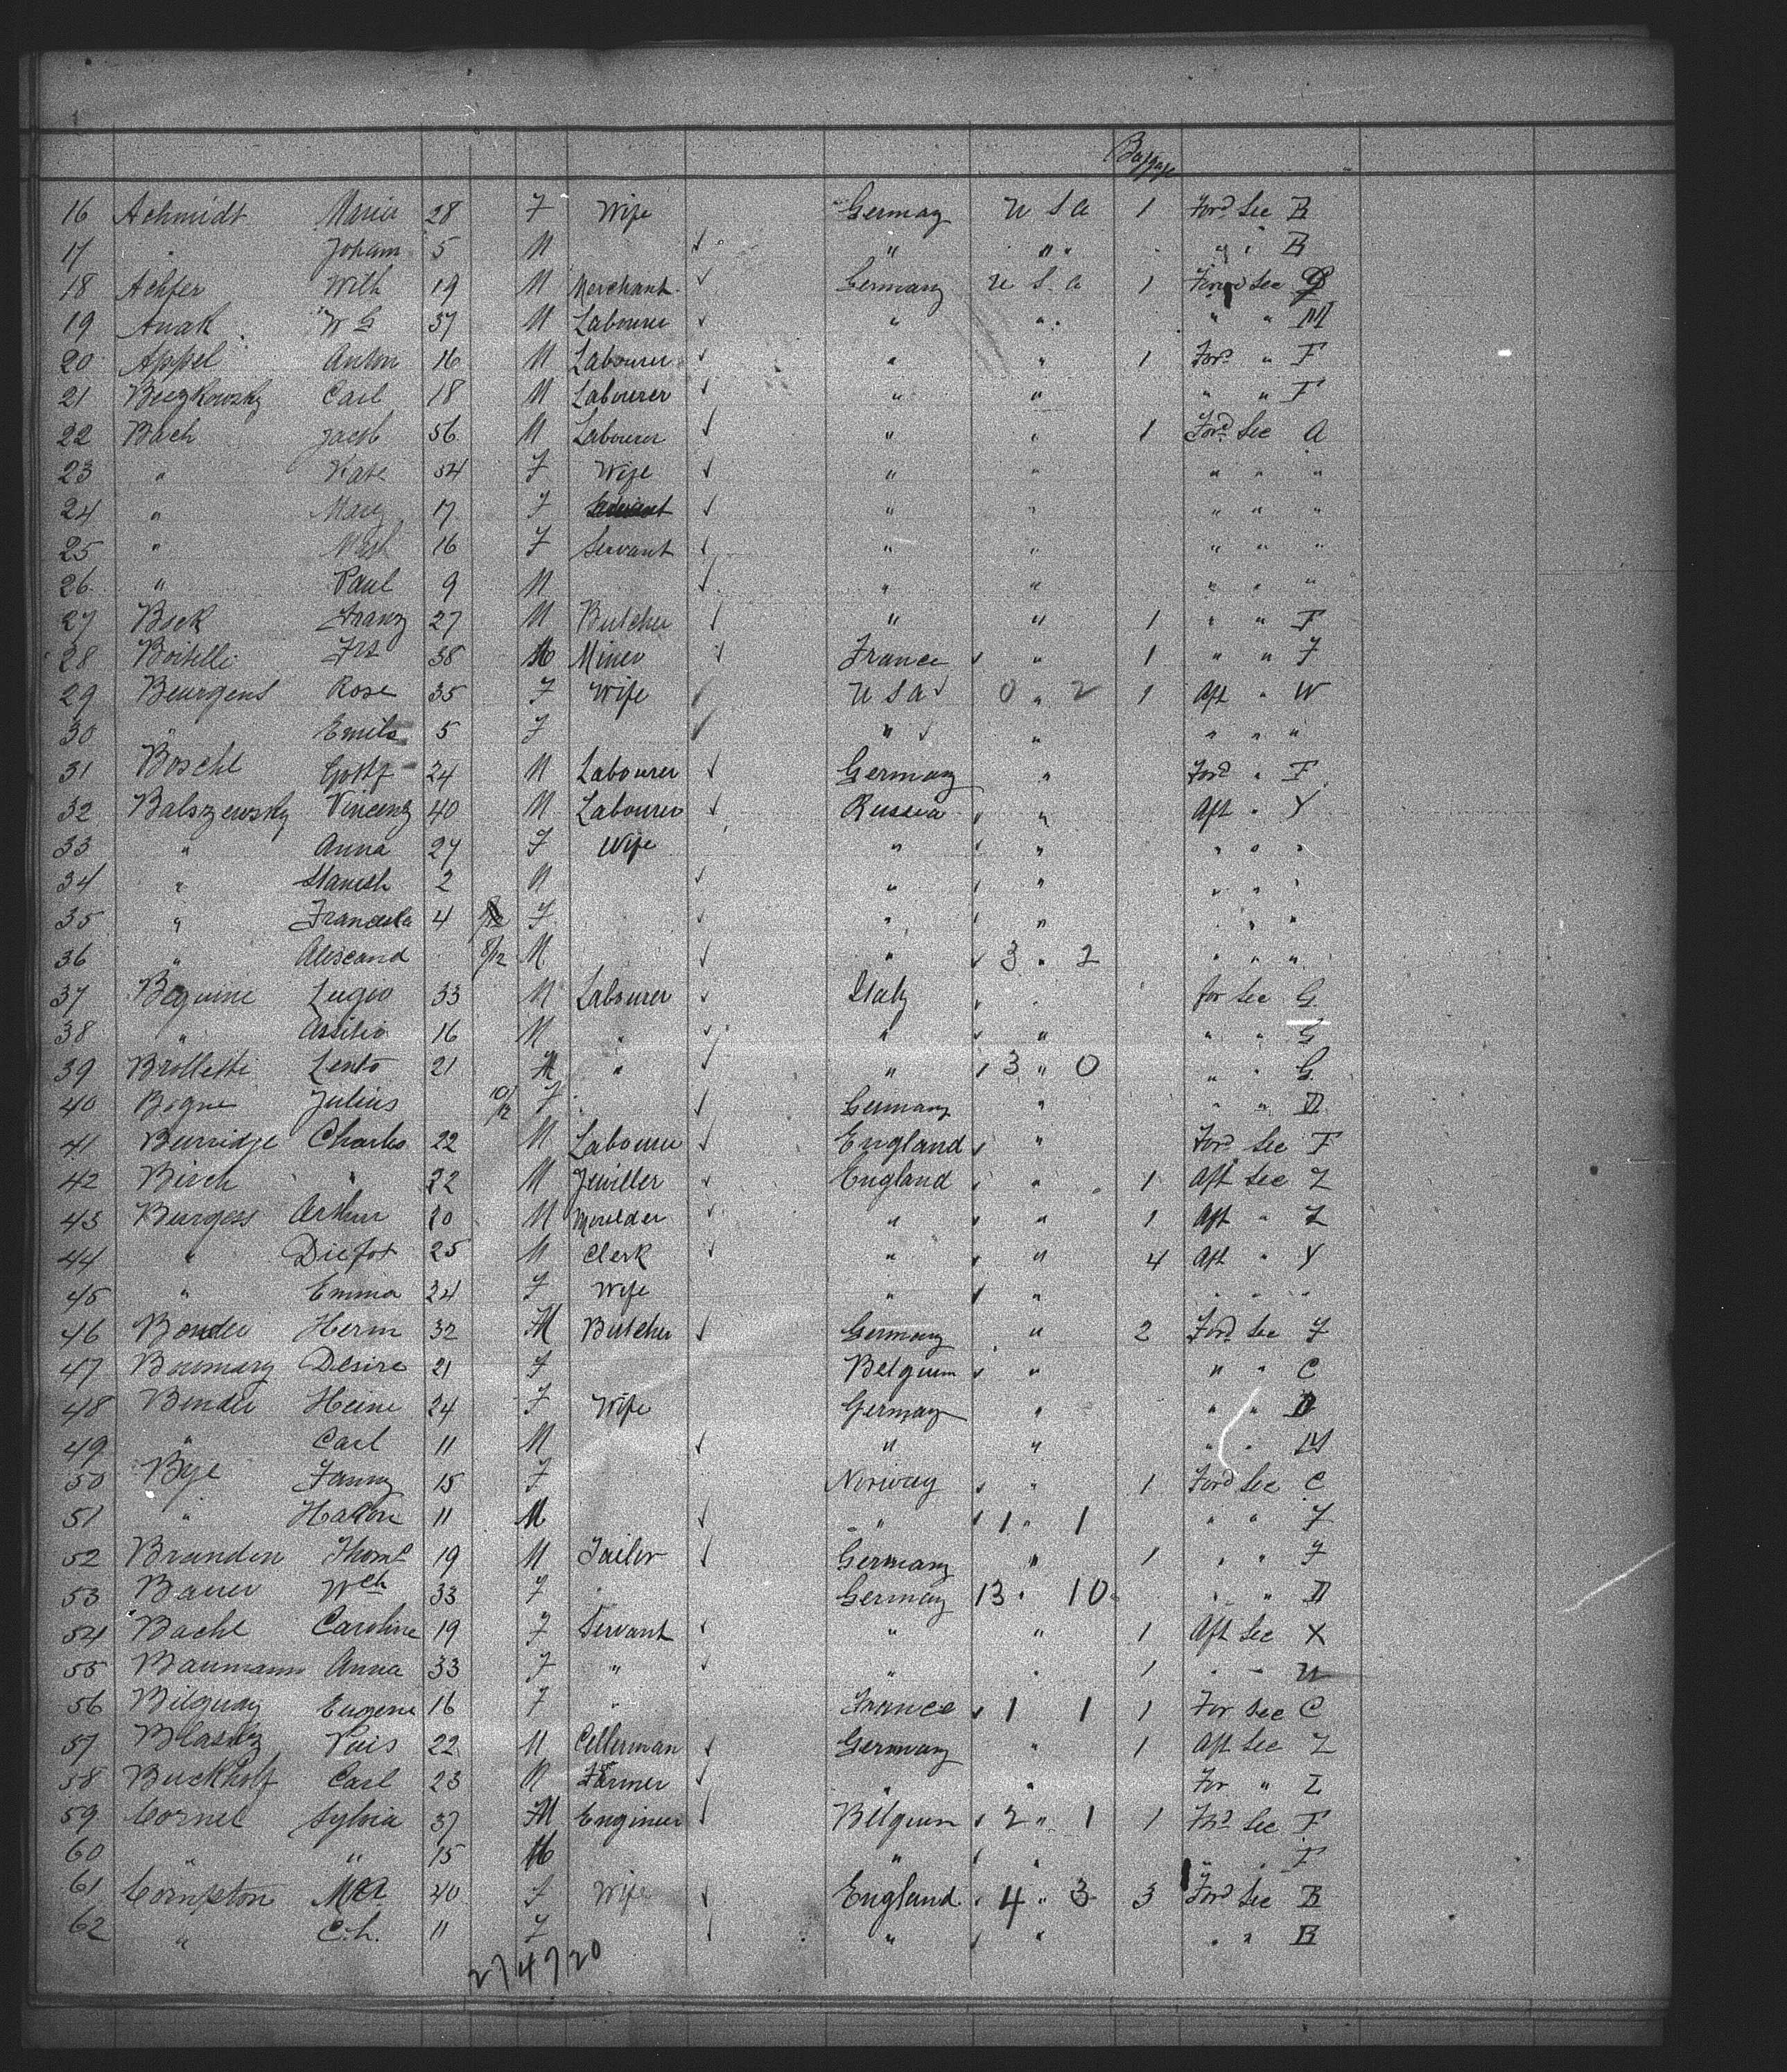 Baggage
16 Achmidt Maria 28 F Wife Germany U S A 1 Ford Sec B
17 " Joham 5 M " " " " B
18 Achfer Wilh 19 M Merchant Germany U S A 1 Ford Sec
19 Anak W G 37 M Labourer " " " " M
20 Appel Anton 16 M Labourer " " 1 Ford " F
21 Carl 18 M Labourer " " " " F
22 Bach Jacob 56 M Labourer " " 1 Ford Sec A
23 " Kate 54 F Wife " " " " "
24 " Mary 17 F Servant " " " " "
25 " 16 F Servant " " " " "
26 " Paul 9 M " " " " "
27 Beck Franz 27 M Butcher " " 1 " " F
28 Boitelli Frs 38 M Miner France " 1 " " F
29 Beurgens Rose 35 F Wife U S A 0 " 2 1 Aft " W
30 " Emile 5 F " " " " "
31 Boschl Gottf 24 M Labourer Germany " Ford " F
32 Balszewsky Vincenz 40 M Labourer Russia " Aft " Y
33 " Anna 27 F Wife " " " " "
34 " Stanish 2 M " " " " "
35 " Franciska 4 F " " " " "
36 " Aliscand 8/12 M " 3 " 2 " " "
37 Beguine Lugio 33 M Labourer Italy " For Sec G
38 " Assitio 16 M " " " " " G
39 Brolletti Zento 21 M " " 3 " 0 " " G
40 Bogne Julius 10/12 F Germany " " " D
41 Burridge Charles 22 M Labourer England " Ford Sec F
42 Birch " 22 M Jewiller England " 1 Aft Sec Z
43 Burgess Arthur 20 M Moulder " " 1 Aft " Z
44 " 25 M Clerk " " 4 Aft " Y
45 " Emma 24 F Wife " " " " "
46 Bender Herm 32 M Butcher Germany " 2 Ford Sec F
47 Desire 21 F Belgium " " " C
48 Bender Heine 24 F Wife Germany " " " D
49 " Carl 11 M " " " " M
50 Bye Fanny 15 F Norway " 1 Ford Sec C
51 " Hakon 11 M " 1 " 1 " " F
52 Branden Thoms 19 M Tailor Germany " 1 " " F
53 Bauer Wch 33 F Germany 13 " 10 " " D
54 Bachl Caroline 19 F Servant " " 1 Aft Sec X
55 Baumann Anna 33 F " " " 1 " " U
56 Bilquay Eugene 16 F " France 1 1 1 For Sec C
57 Pais 22 M Cellerman Germany " 1 Aft Sec Z
58 Buckholz Carl 23 M Farmer " " For " Z
59 Cornel Sylvia 37 M Engineer Belgium 2 " 1 1 Ford Sec F
60 " " 15 M " " " " F
61 Compton 40 F Wife England 4 " 3 3 Ford Sec B
62 " C.h. 11 F " " " " B
27 47 20